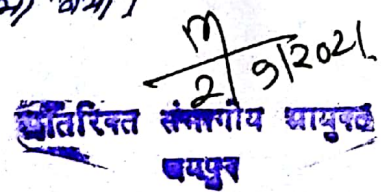 m
2/9/2021
अतिरिक्त संभागीय आयुक्त
जयपुर